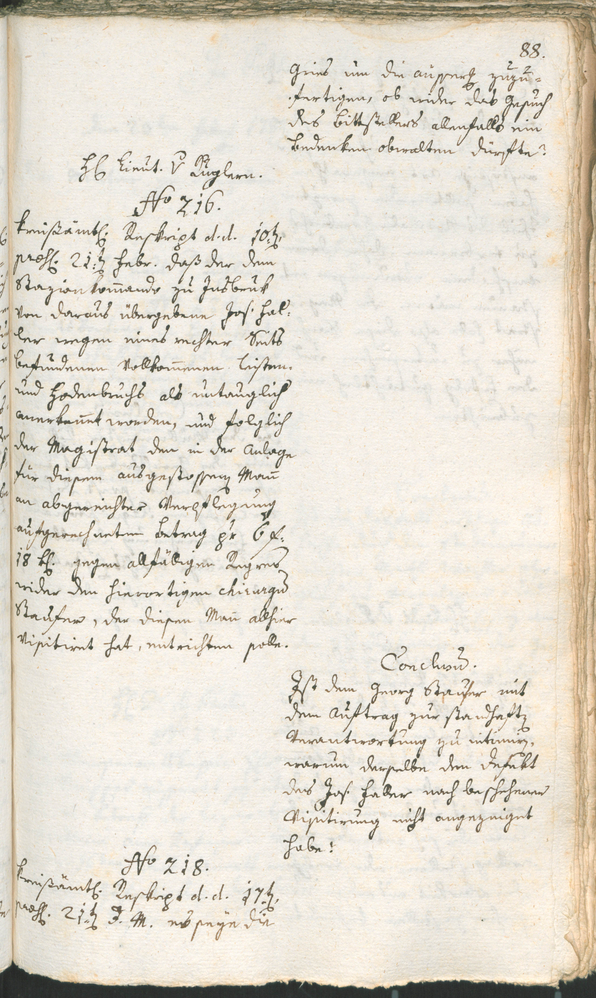 88.
Gries um die äusserst zuzu-
fertigen, ob wider das Gesuch
des Bittstellers allenfalls ein
Bedenken obwalten dürfte?
H. Lieut. v Kuglern.
No 216.
Kreisämtl. Reskript d.d. 10t,
praes. 21t Febr. daß der dem
Stazionskommando zu Insbruk
von daraus übergebene Jos. Hal-
ler wegen eines rechter Seits
befundenen vollkommenen Listen-
und Hodenbruchs als untauglich
anerkennt worden, und folglich
der Magistrat den in der Anlage
für diesen ausgestossenen Mann
an abgereichter Verpflegung
aufgerechneten Betrag pr 6 f.
18 kr. gegen allfälligen Regress
wider den hierortigen chirurgus
Staufer, der diesen Mann allhier
visitiret hat, entrichten solle.
Conclusu.
Ist dem Georg Staufer mit
dem Auftrag zur standhaften
Verantwortung zu intimiren,
warum derselbe den Defekt
des Jos. Haller nach beschehener
Visitirung nicht angezeiget
habe!
No 218.
Kreisämtl. Reskript d.d. 17t,
praes. 21t d. M. es seye die